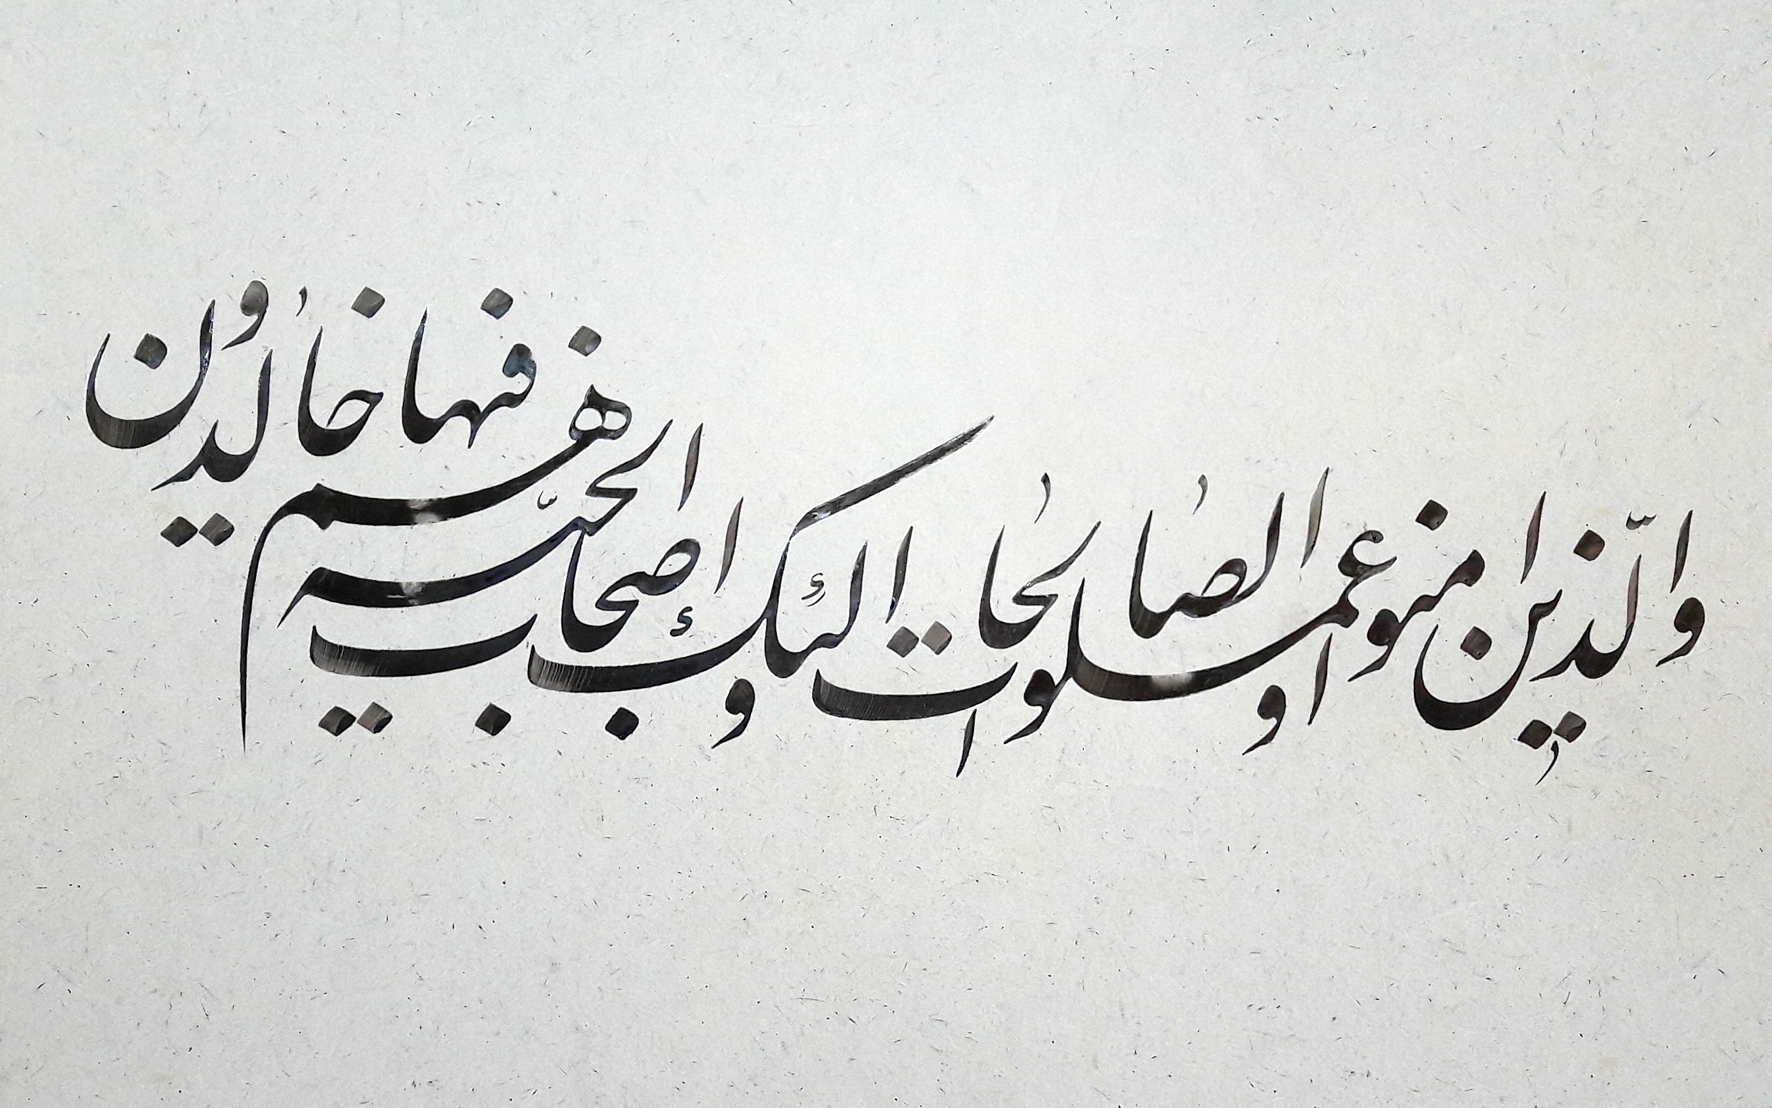 والّذین امنوا و عملوا الصالحات اولئک اصحاب الجنّه هم فیها خالدون